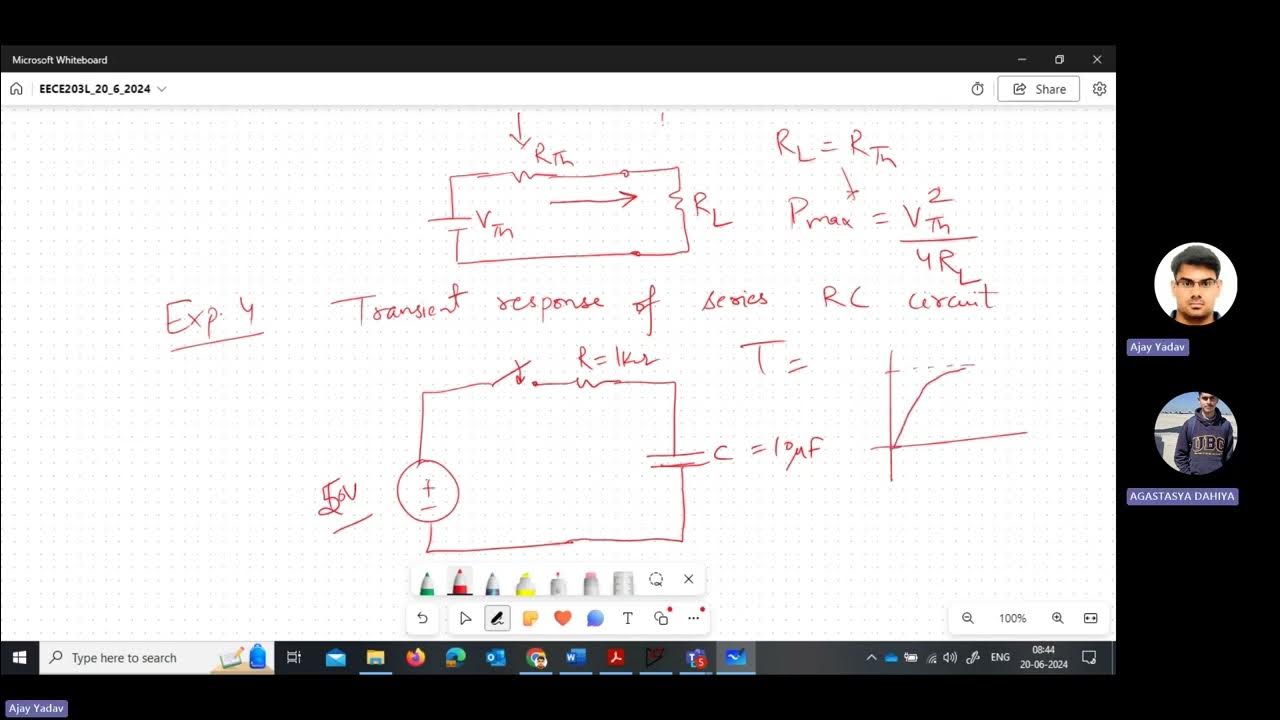 Microsoft Whiteboard
EECE203L_20_6_2024
Share
R_Th
R_L = R_Th
V_Th
R_L
P_max = V_Th^2 / 4R_L
Exp. 4 Transient response of series RC circuit
R = 1kΩ
T =
C = 10μF
50V
+
−
Ajay Yadav
UBC
AGASTASYA DAHIYA
T
100%
Type here to search
ENG
08:44
20-06-2024
Ajay Yadav